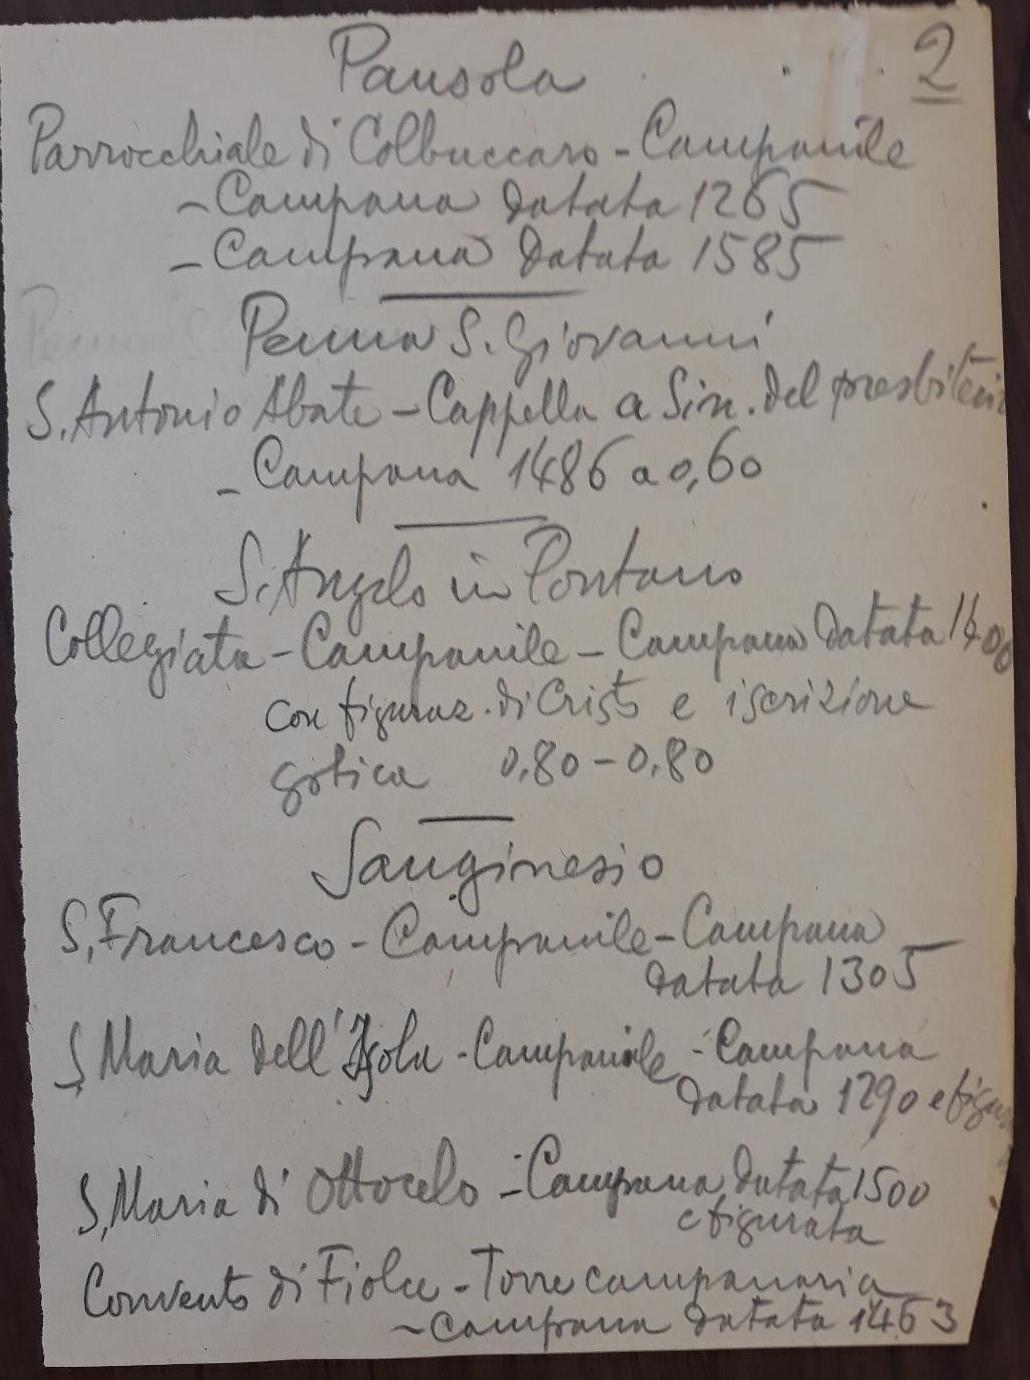 2
Pausola
Parrocchiale di Colbuccaro - Campanile
- Campana datata 1265
- Campana datata 1585
Penna S. Giovanni
S. Antonio Abate - Cappella a Sin. del presbiterio
- Campana 1486 a 0,60
S. Angelo in Pontano
Collegiata - Campanile - Campana datata 1400
con figuraz. di Cristo e iscrizione
gotica 0.80 - 0.80
Sanginesio
S. Francesco - Campanile - Campana
datata 1305
S. Maria dell'Isola - Campanile - Campana
datata 1290 e
S. Maria di Ottocelo - Campana datata 1500
e figurata
Convento di - Torre campanaria
- campana datata 1463